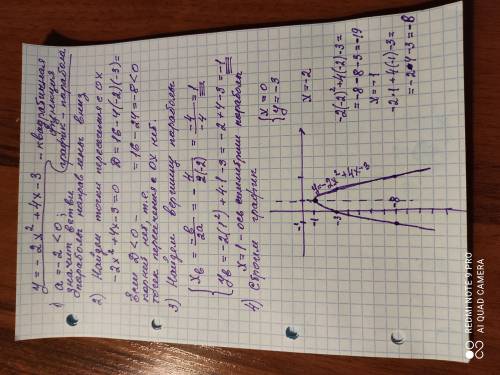 y = -2x² + 4x - 3 - квадратичная
функция
график - парабола
1) a = -2 < 0
значит ветви
параболы направлены вниз
2) Найдем точки пересечения с OX
-2x² + 4x - 3 = 0 D = 16 - 4(-2)(-3) =
= 16 - 24 = -8 < 0
Если D < 0 -
корней нет, т.е.
точек пересечения с OX нет.
3) Найдем вершину параболы
{ xв = -b/2a = -4/2(-2) = -4/-4 = 1
{ yв = -2(1²) + 4·1 - 3 = -2 + 4 - 3 = -1
x = 1 - ось симметрии параболы
4) Строим график
{ x = 0
{ y = -3
x = -2
-2(-2)² + 4(-2) - 3 =
= -8 - 8 - 3 = -19
x = -1
-2·1 + 4(-1) - 3 =
= -2 - 4 - 3 = -8
-1
-1
-3
-8
REDMI NOTE 9 PRO
AI QUAD CAMERA